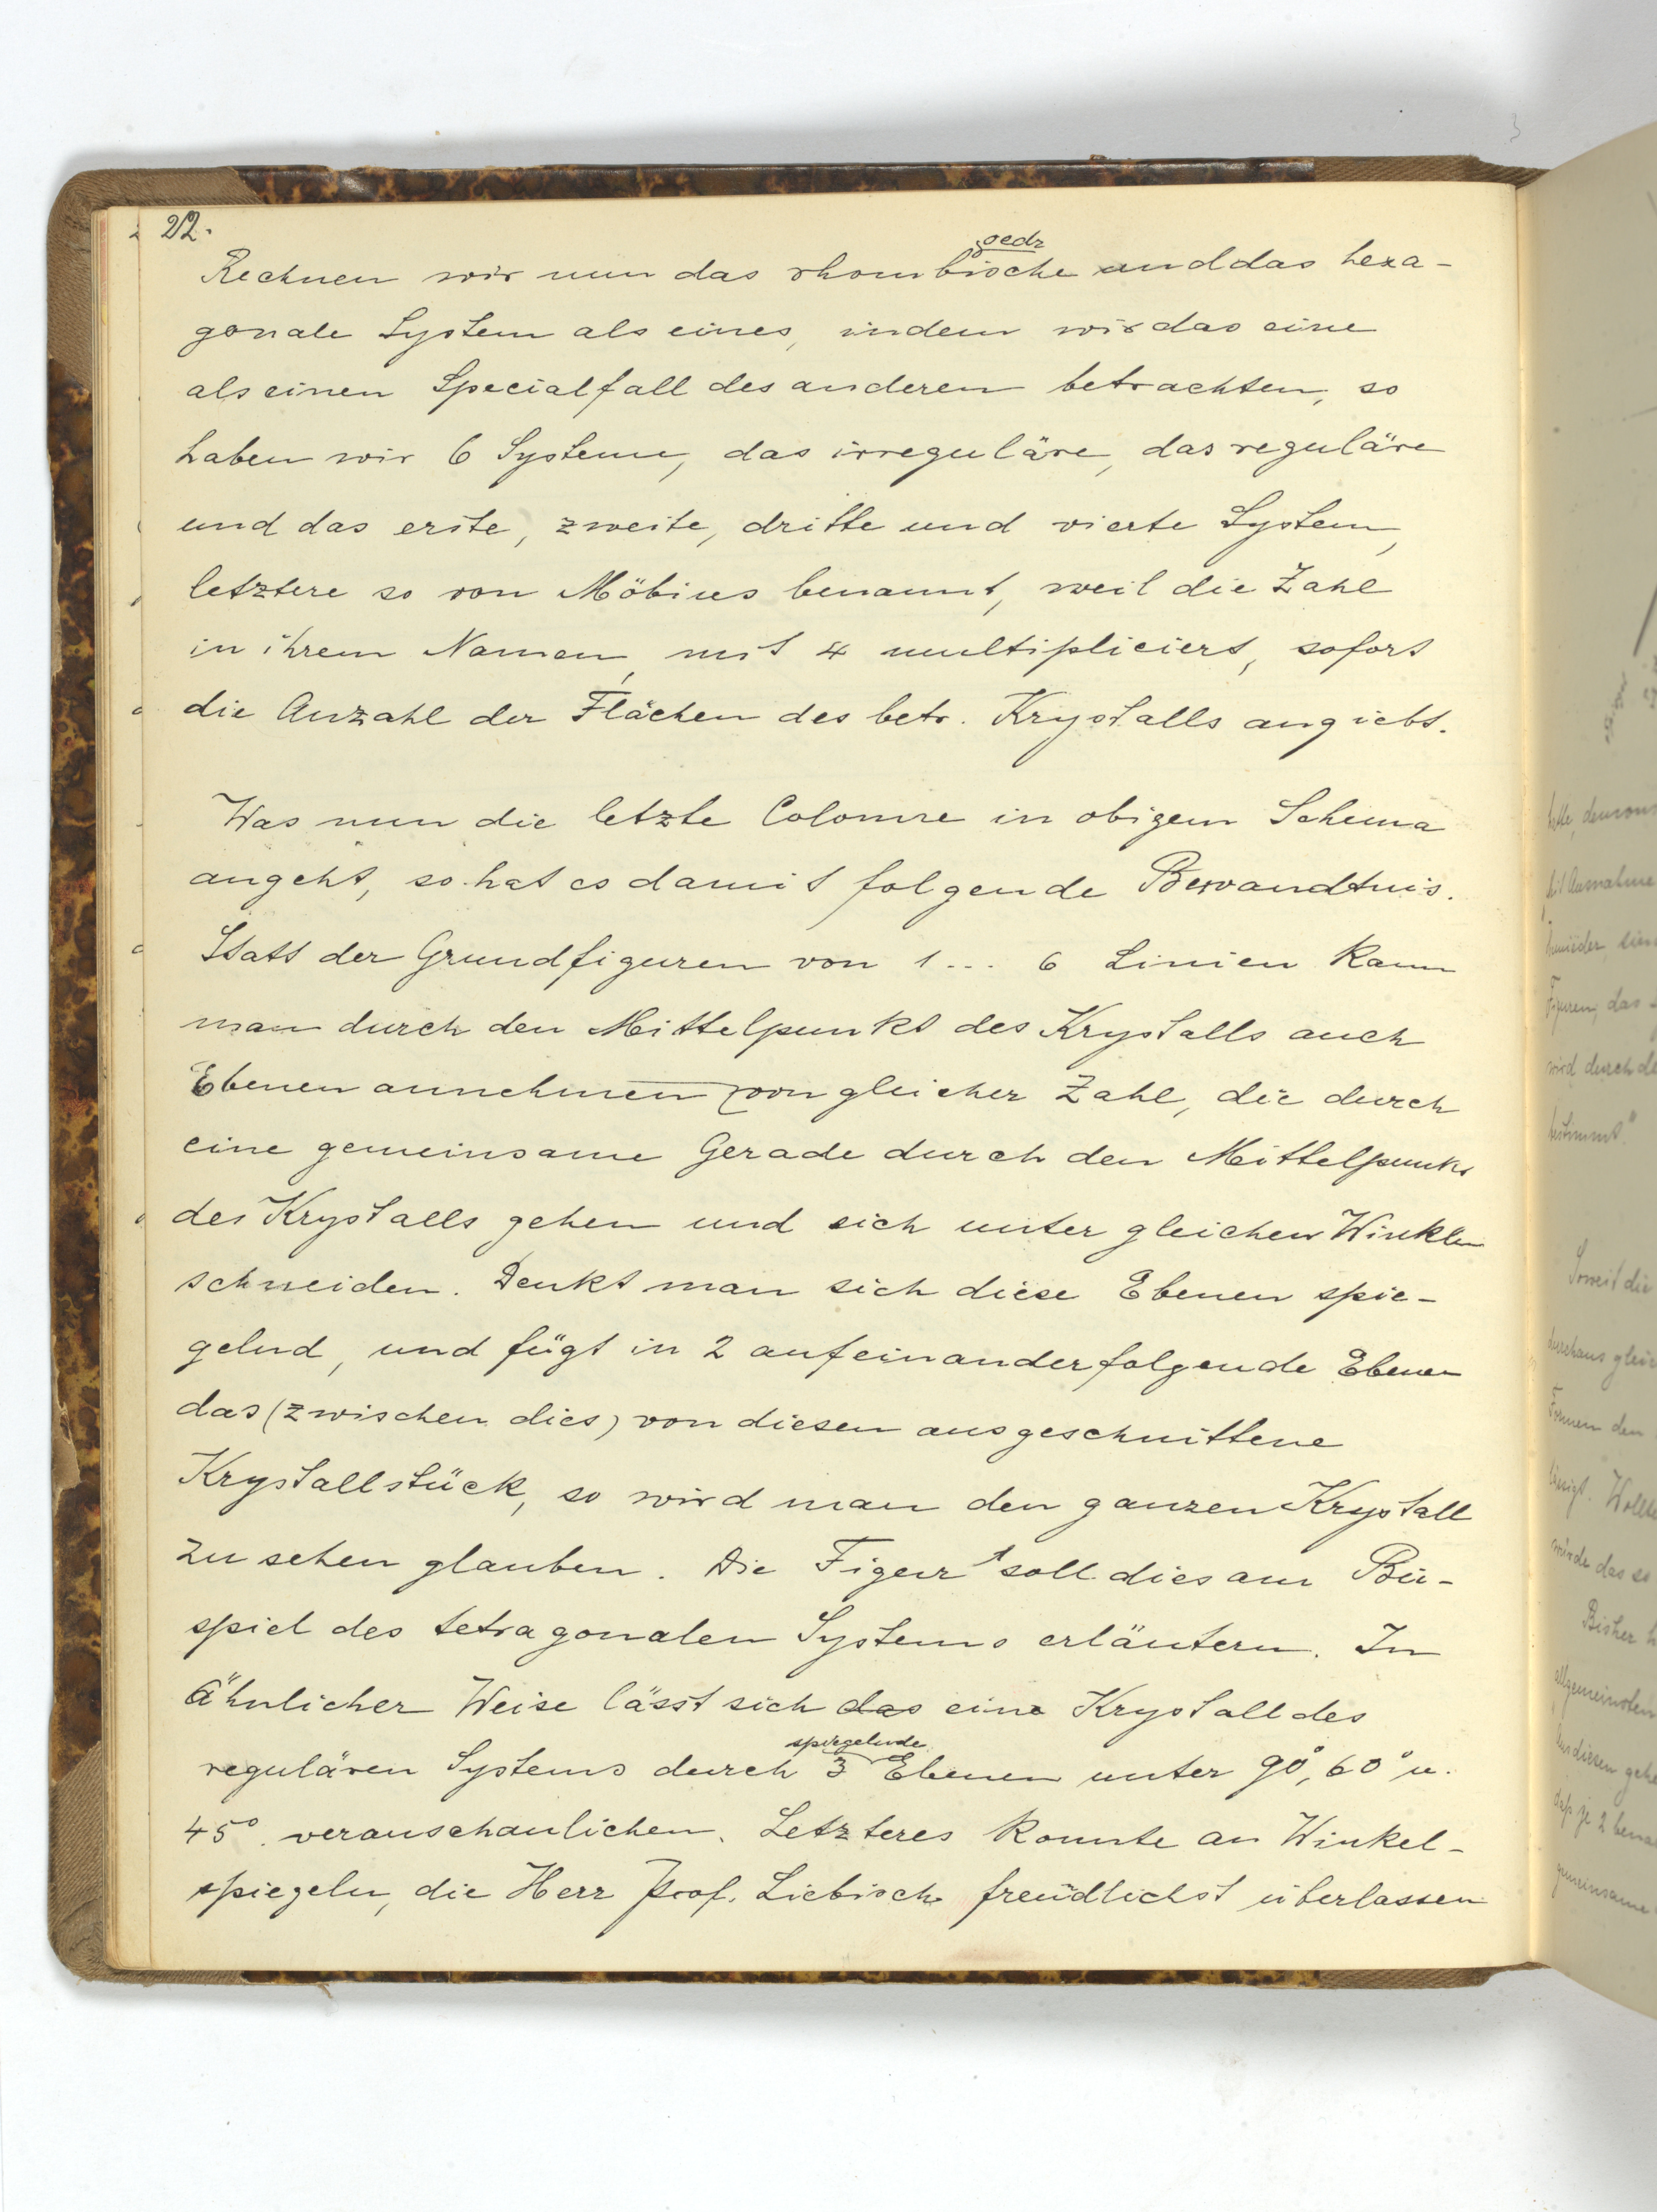 22.
oedr
Rechnen wir nun das rhombische und das hexa-
gonale System als eines, indem wir das eine
als einen Specialfall des anderen betrachten, so
haben wir 6 Systeme, das irreguläre, das reguläre
und das erste, zweite, dritte und vierte System,
letztere so von Möbius benannt, weil die Zahl
in ihrem Namen, mit 4 multipliciert, sofort
die Anzahl der Flächen des betr. Krystalls angiebt.
Was nun die letzte Colonne in obigem Schema
angeht, so hat es damit folgende Bewandtnis.
Statt der Grundfiguren von 1 ... 6 Linien kann
man durch den Mittelpunkt des Krystalls auch
Ebenen annehmen von gleicher Zahl, die durch
eine gemeinsame Gerade durch den Mittelpunkt
des Krystalls gehen und sich unter gleichen Winkeln
schneiden. Denkt man sich diese Ebenen spie-
gelnd, und fügt in 2 aufeinanderfolgende Ebenen
das (zwischen dies) von diesen ausgeschnittene
Krystallstück, so wird man den ganzen Krystall
zu sehen glauben. Die Figur 1 soll dies am Bei-
spiel des tetragonalen Systems erläutern. In
ähnlicher Weise lässt sich das eine Krystall des
spiegelnde
regulären Systems durch 3 Ebenen unter 90°, 60° u.
45° veranschaulichen. Letzteres konnte an Winkel-
spiegeln, die Herr Prof. Liebisch freundlichst überlassen
hatte, demons
mit Ausnahme
Figuren, das
wird durch de
bestimmt."
Soweit die
durchaus gleic
Formen den
Wollte
würde das so
Bisher h
allgemeinsten
aus diesen gehe
daß je 2 bena
gemeinsame